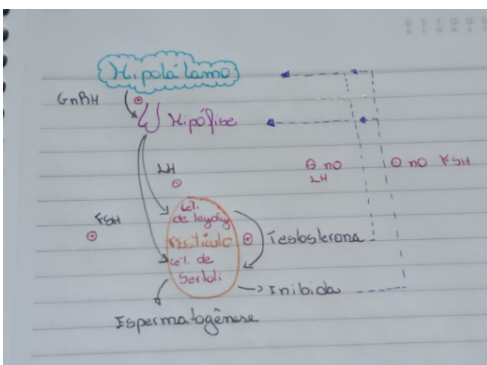 Hipotálamo
GnRH ⊕
Hipófise
LH
⊕
⊖ no
LH
⊖ no FSH
FSH
⊕
cél.
de leydig
Testículo
cél. de
Sertoli
⊕
Testosterona
Inibida
Espermatogênese